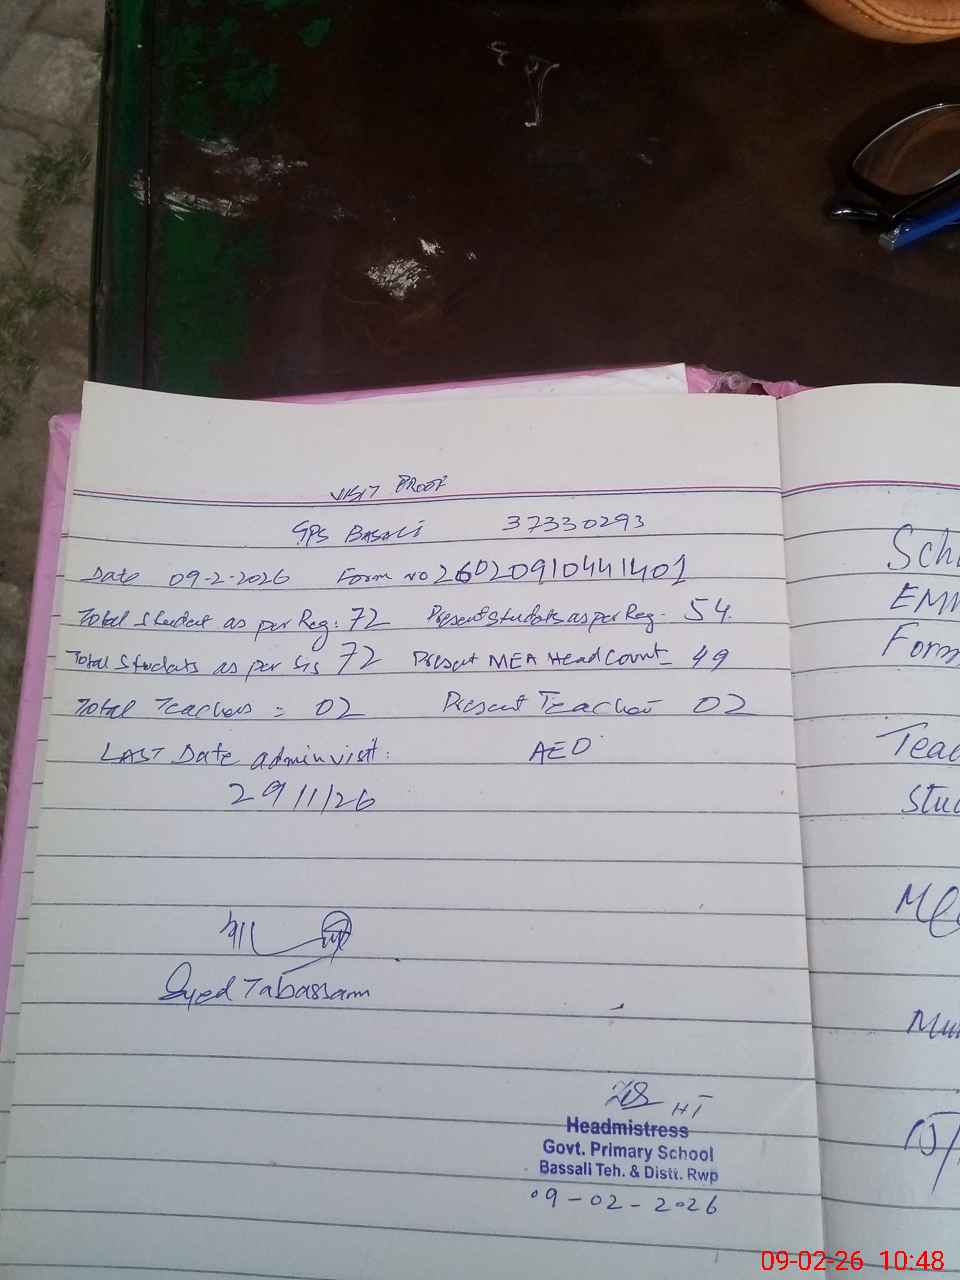 VISIT PROOF
GPS BASALI 37330293
Date 09-2-2026 Form no 26020910441401
Total Student as per Reg: 72 Present students as per Reg- 54.
Total Students as per Sis 72 Present MEA Head Count- 49
Total Teachers = 02 Present Teacher- 02
LAST Date admin visit: AEO
29/1/26
Syed Tabassam
HT
Headmistress
Govt. Primary School
Bassali Teh. & Distt. Rwp
09-02-2026
Sch
EMI
Form
Teac
Stu
09-02-26 10:48